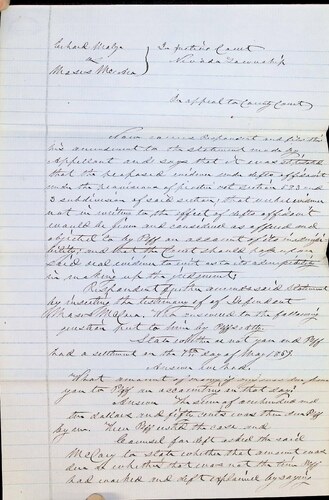 vs
In Justice's Court
Nevada Township
On appeal to County Court
Now comes Respondent and files this
his amendment to the statement made by
Appellant and says that it was
that the proposed evidence under defts affidavit
under the provisions of section 623 and
3 subdivision of said section; that verbal evidence
not in writing to the effect of defts affidavit
would be given and considered as offered and
objected to by Plff on account of its
and that the Court should pass upon
said oral evidence to wit as to its admissibility
in making up the judgment;
Respondent further amends said statement
by inserting the testimony of of Defendant
Moses who answered to the following
question put to him by Plffs atty.
State whether or not you and Plff
had a settlement on the day of May 1857.
Answer we had.
What amount of money if any was due from
you to Plff on accounting on that day?
Answer The sum of one hundred and
ten dollars and fifty cents was then due Plff
by me. Then Plff rested the case and
Counsel for deft asked the said
to state whether that amount was
due or whether that was not the time Plff
had worked and deft explained by saying